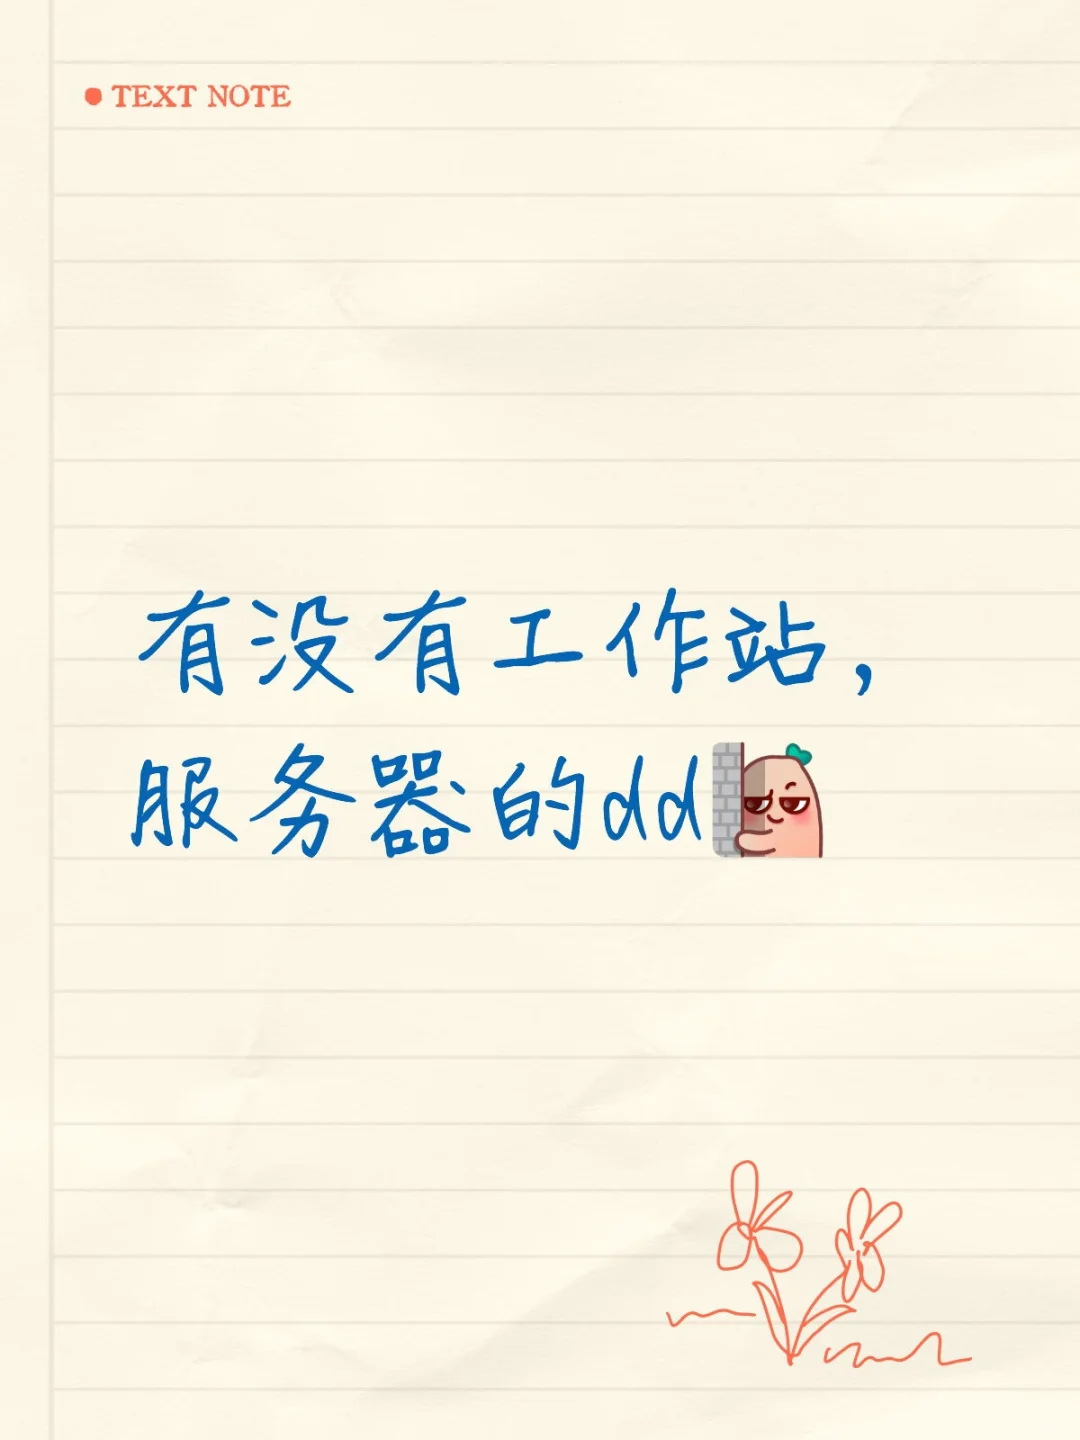 TEXT NOTE
有没有工作站，
服务器的dd